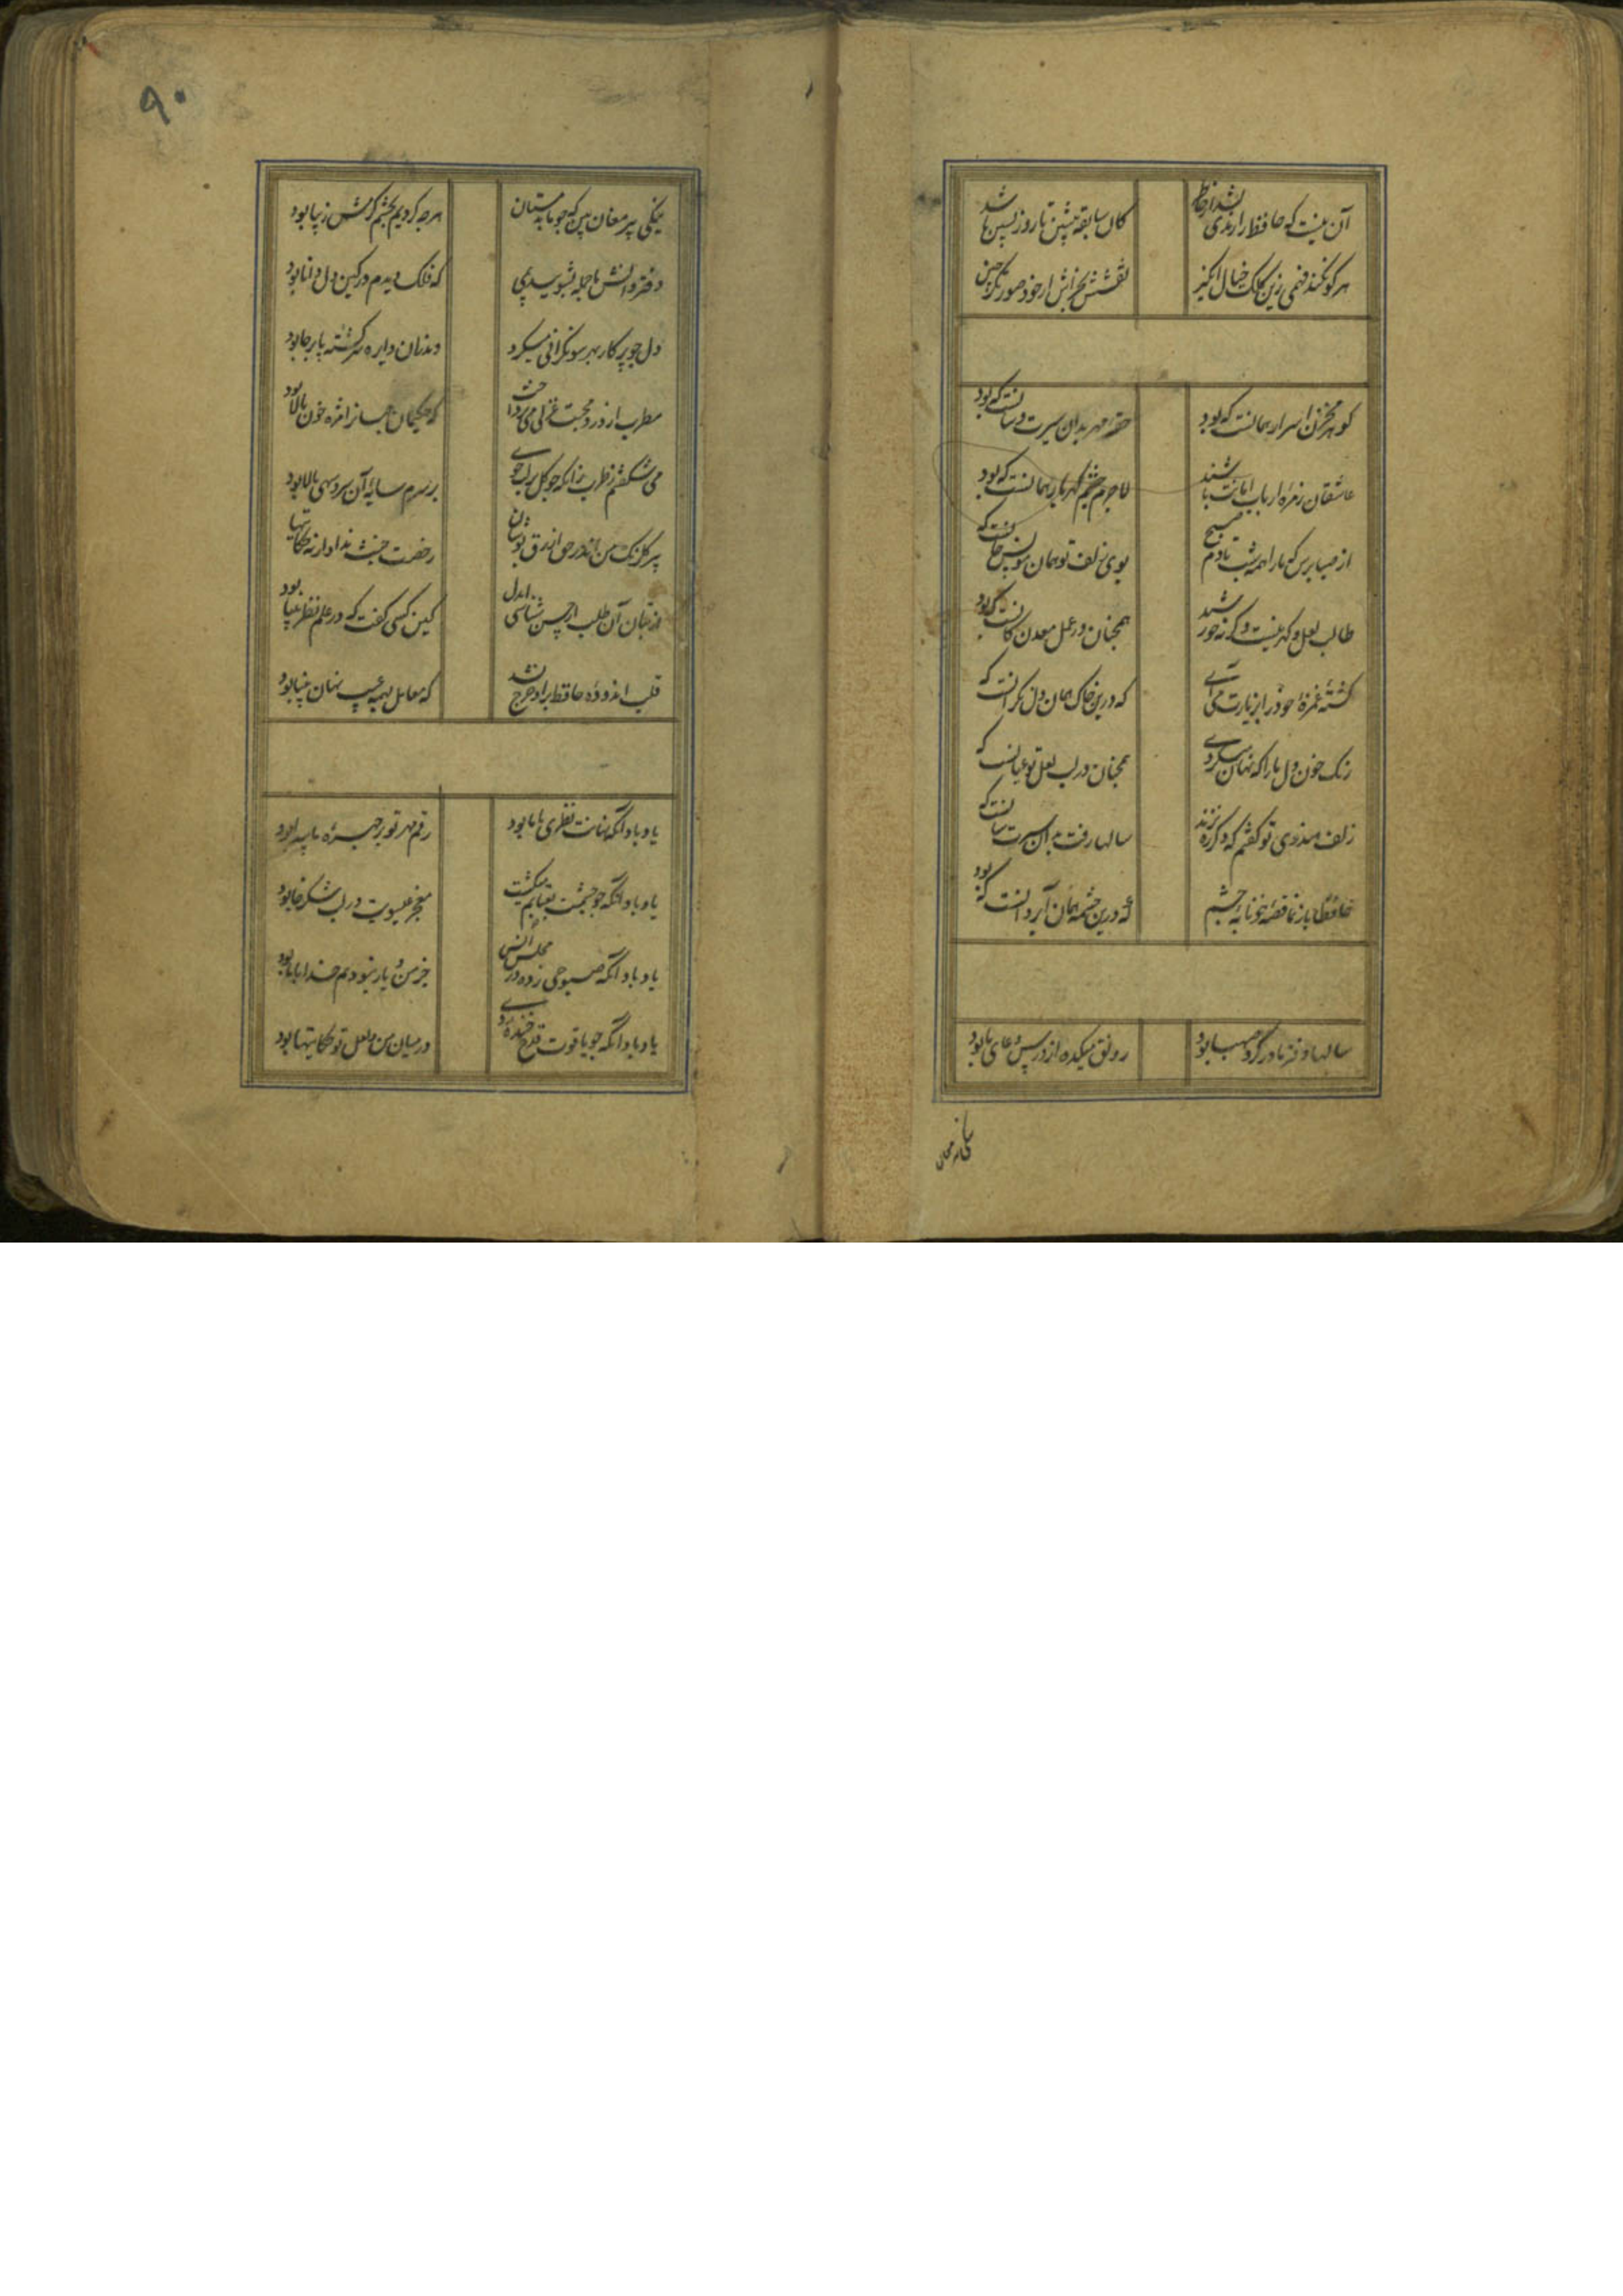 آن نیست که حافظ را رندی بشد از خاطر
کان سابقه پیشین تا روز پسین باشد
هر کو نکند فهمی زین کلک خیال انگیز
نقشش بخراش ار خود صورتگر چین
کوهر مخزن اسرار همانست که بود
حقه مهر بدان سیرت و سانست که بود
عاشقان زمره ارباب امانت باشند
لاجرم چشم کهربار همانست که بود
از صبا پرس که ما را همه شب تا دم صبح
بوی زلف تو همان مونس جانست که
طالب لعل و کهر نیست وکرنه خورشید
همچنان در عمل معدن کانست که بود
کشته غمزه خود را بزیارت می آی
که درین خاک همان دل نکرانست که
رنک خون دل ما را که نهان میکردی
همچنان در لب لعل تو عیانست که
زلف هندوی تو کفتم که دکر ره نزند
سالها رفت بدان سیرت سانست که
حافظا باز نما قصه خونابه چشم
که درین چشمه همان آب روانست که بود
سالها دفتر ما در کرو صهبا بود
رونق میکده از درس و دعای ما بود
نیکی پیر مغان
۹۰
نیکی پیر مغان بین که چو ما بدمستان
هر چه کردیم بچشم کرمش زیبا بود
دفتر دانش ما جمله بشویید بمی
که فلک دیدم در کین دل دانا بود
دل چو پرکار بهر سو نکرانی میکرد
وندران دایره سرکشته پابرجا بود
مطرب از درد محبت غزلی می پرداخت
که حکیمان جهانرا مژه خون پالا بود
می شکفتم ز طرب زانکه چو کل بر لب جوی
بر سرم سایه آن سرو سهی بالا بود
پیر کلرنک من اندر حق ازرق پوشان
رخصت خبث نداد ار نه حکایتها
از بتان آن طلب ار حسن شناسی ای دل
کین کسی کفت که در علم نظر بینا بود
قلب اندوده حافظ بر او خرج نشد
که معامل بهمه عیب نهان بینا بود
یاد باد آنکه نهانت نظری با ما بود
رقم مهر تو بر چهره ما پیدا بود
یاد باد آنکه چو چشمت بعتابم میکشت
معجز عیسویت در لب شکرخا بود
یاد باد آنکه صبوحی زده در مجلس انس
جز من و یار نبودیم خدا با ما بود
یاد باد آنکه چو یاقوت قدح خنده زدی
در میان من و لعل تو حکایتها بود